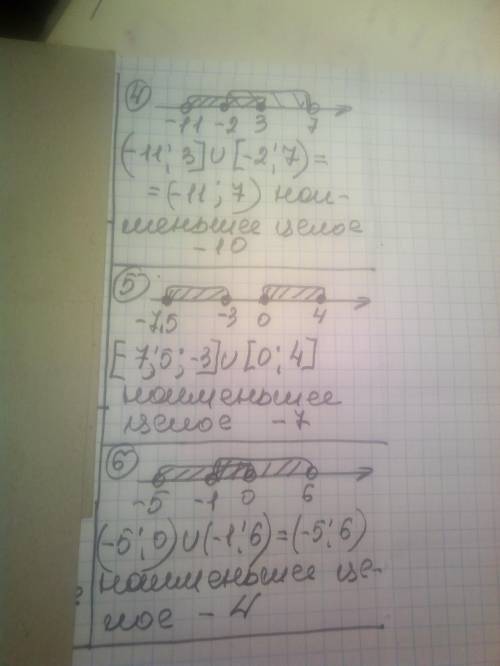 4
-11 -2 3 7
(-11; 3]∪[-2; 7)=
=(-11; 7) наи-
меньшее целое
-10
5
-7,5 -3 0 4
[-7,5; -3]∪[0; 4]
наименьшее
целое -7
6
-5 -1 0 6
(-5; 0)∪(-1; 6)=(-5; 6)
наименьшее це-
лое -4